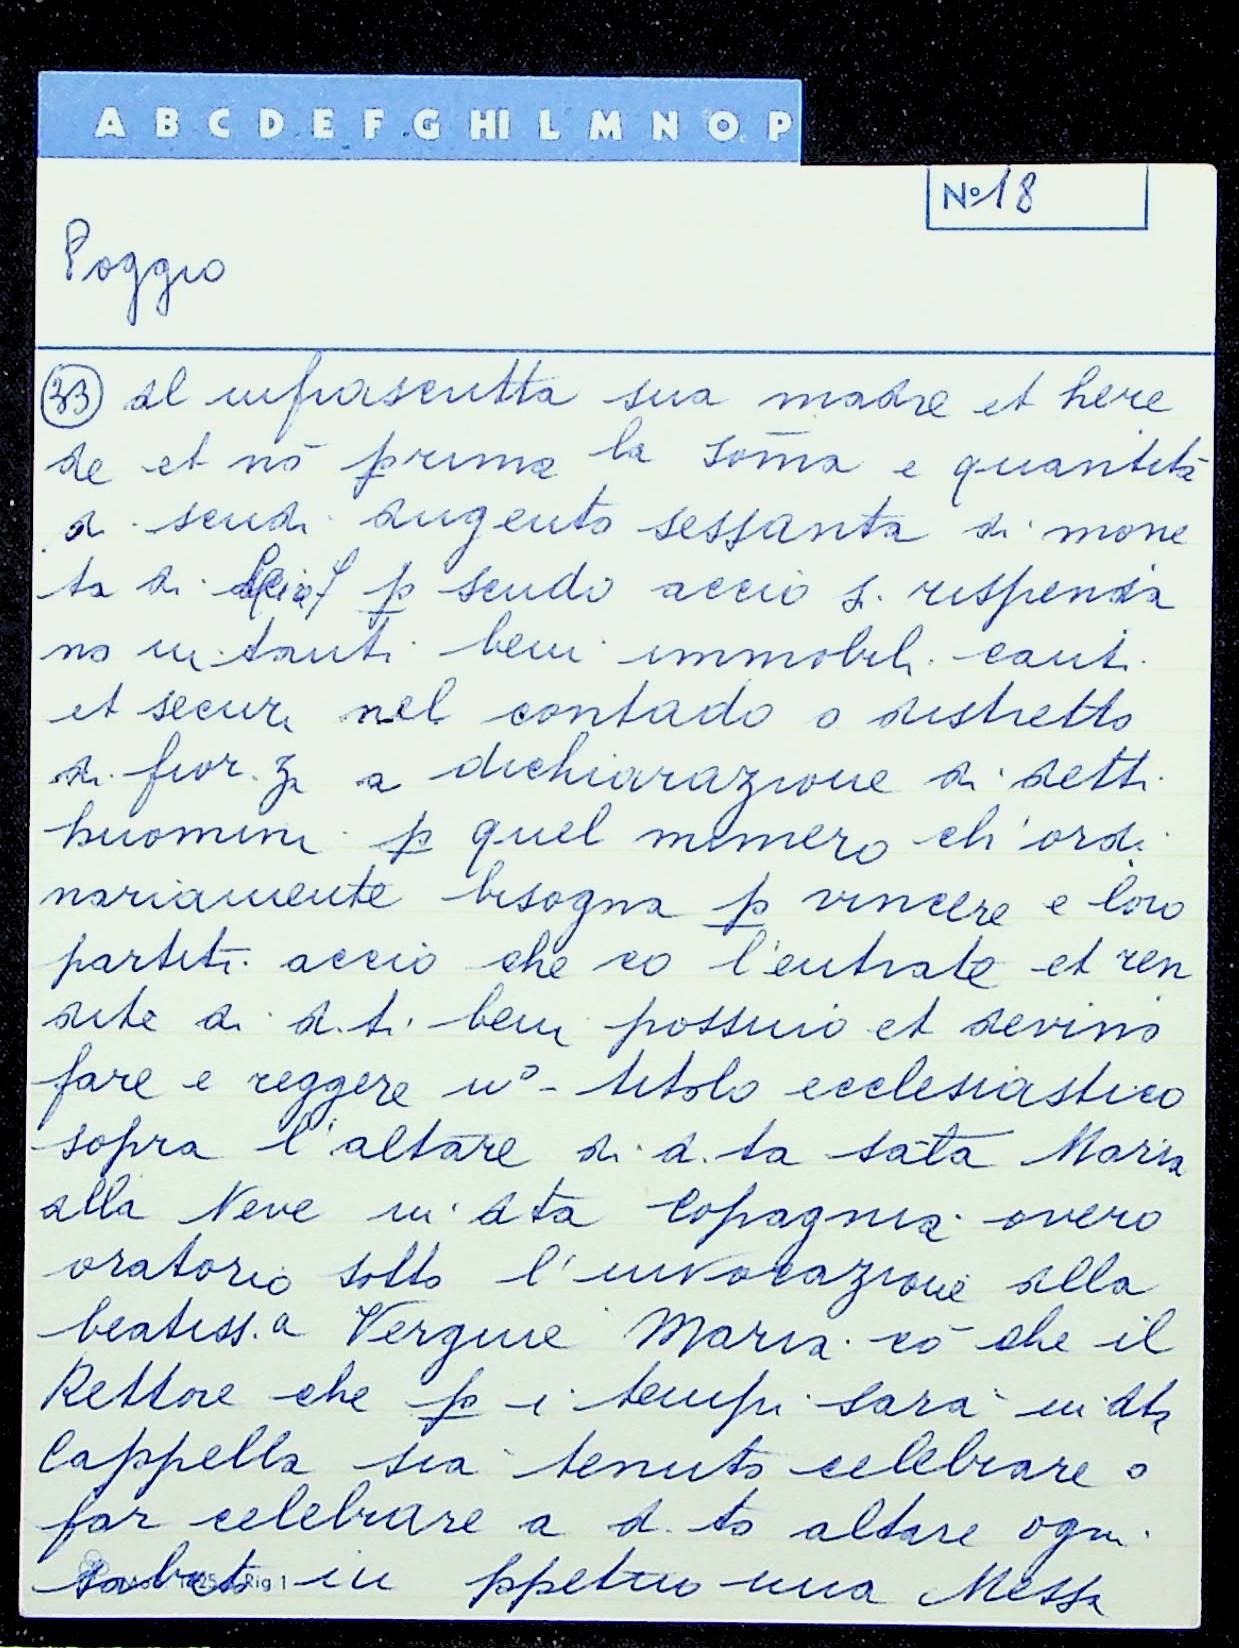 A B C D E F G HI L M N O P
Nº 18
Poggio
33 al infrascritta sua madre et here
de et nō prima la sōma e quantità
di scudi dugento sessanta di mone
ta di p scudo acciò s. respenda
no in tanti beni immobili cauti
et securi nel contado o distretto
di fior.za a dichiarazione di detti
huomini p quel numero ch'ordi
nariamente bisogna p vincere e loro
partiti acciò che co l'entrate et ren
dite di d.ti beni possino et devino
fare e reggere uº- titolo ecclesiastico
sopra l'altare di d.ta sāta Maria
alla Neve in dta Copagnia overo
oratorio sotto l'invocazione alla
beatiss.a Vergine Maria cō che il
Rettore che p i tempi sarà in dta
Cappella sia tenuto celebrare o
far celebrare a d.to altare ogni
sabato in ppetuo una Messa